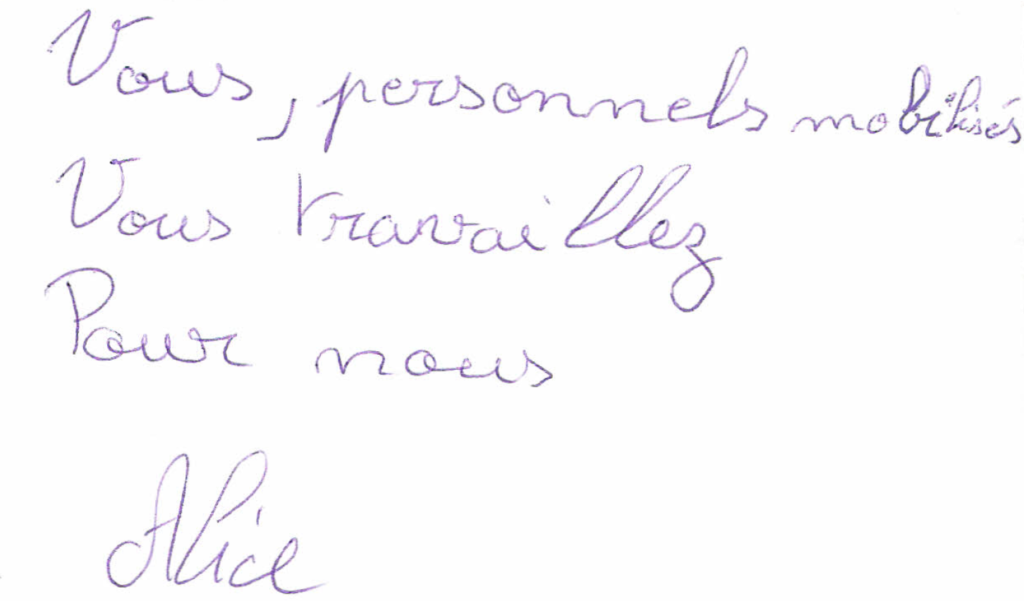 Vous, personnels mobilisés
Vous travaillez
Pour nous
Alice